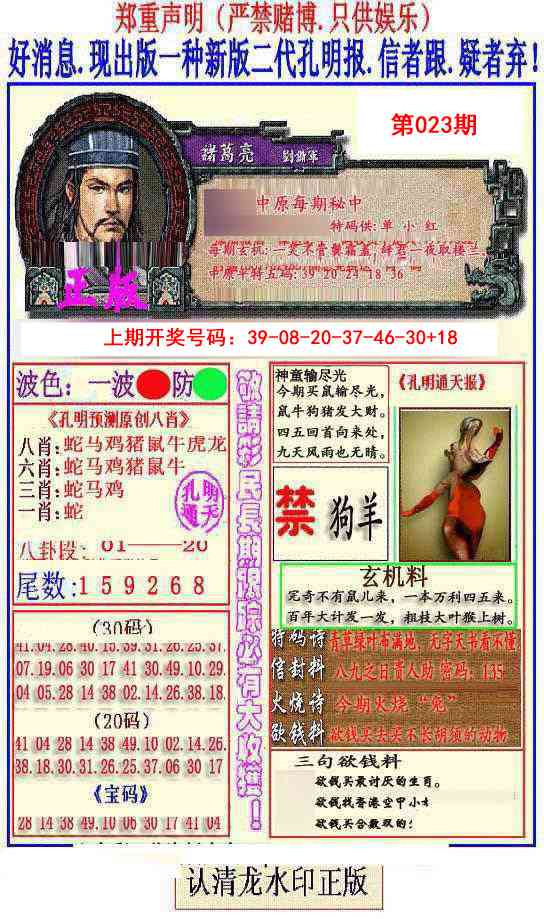 郑重声明（严禁赌博.只供娱乐）
好消息.现出版一种新版二代孔明报.信者跟.疑者弃！
第023期
諸葛亮
中原每期秘中
特码供:单 小 红
每期玄机:一
夜取楼兰.
39 20 23 18 36
正版
上期开奖号码：39-08-20-37-46-30+18
波色：一波 防
《孔明预测原创八肖》
八肖:蛇马鸡猪鼠牛虎龙
六肖:蛇马鸡猪鼠牛
三肖:蛇马鸡
一肖:蛇
孔明
通天
八卦段：01——20
尾数:159268
敬請彩民長期跟踪必有大收獲！
神童输尽光
今期买鼠输尽光，
鼠牛狗猪发大财。
四五回首向来处，
九天风雨也无晴。
《孔明通天报》
禁 狗羊
玄机料
完奇不有鼠儿来，一本万利四五来。
百年大计发一发，粗枝大叶猴上树。
(30码)
41.04.28.40.15.39.31.26.25.37
07.19.06.30 17 41 30.49.10.29.
04 05.28 14 38 02.14.26.38.18.
(20码)
41 04 28 14 38 49.10 02.14.26.
38.18.30.31.26.25.37.06 30 17
《宝码》
28 14 38 49.10 06 30 17 41 04
特码诗 青草绿叶布满地，无字天书看不懂
信封料 八九之日贵人助 密码：135
火烧诗 今期火烧“兔”
欲钱料 欲钱买去买不长胡须的动物
三句欲钱料
欲钱买最讨厌的生肖。
欲钱找香港空甲小
欲钱买合数双的！
认清龙水印正版